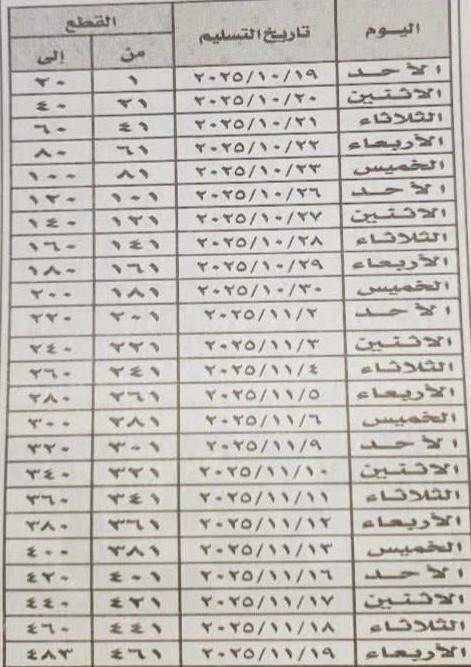 اليوم تاريخ التسليم القطع
من إلى
الأحد ٢٠٢٥/١٠/١٩ ١ ٢٠
الاثنين ٢٠٢٥/١٠/٢٠ ٢١ ٤٠
الثلاثاء ٢٠٢٥/١٠/٢١ ٤١ ٦٠
الأربعاء ٢٠٢٥/١٠/٢٢ ٦١ ٨٠
الخميس ٢٠٢٥/١٠/٢٣ ٨١ ١٠٠
الأحد ٢٠٢٥/١٠/٢٦ ١٠١ ١٢٠
الاثنين ٢٠٢٥/١٠/٢٧ ١٢١ ١٤٠
الثلاثاء ٢٠٢٥/١٠/٢٨ ١٤١ ١٦٠
الأربعاء ٢٠٢٥/١٠/٢٩ ١٦١ ١٨٠
الخميس ٢٠٢٥/١٠/٣٠ ١٨١ ٢٠٠
الأحد ٢٠٢٥/١١/٢ ٢٠١ ٢٢٠
الاثنين ٢٠٢٥/١١/٣ ٢٢١ ٢٤٠
الثلاثاء ٢٠٢٥/١١/٤ ٢٤١ ٢٦٠
الأربعاء ٢٠٢٥/١١/٥ ٢٦١ ٢٨٠
الخميس ٢٠٢٥/١١/٦ ٢٨١ ٣٠٠
الأحد ٢٠٢٥/١١/٩ ٣٠١ ٣٢٠
الاثنين ٢٠٢٥/١١/١٠ ٣٢١ ٣٤٠
الثلاثاء ٢٠٢٥/١١/١١ ٣٤١ ٣٦٠
الأربعاء ٢٠٢٥/١١/١٢ ٣٦١ ٣٨٠
الخميس ٢٠٢٥/١١/١٣ ٣٨١ ٤٠٠
الأحد ٢٠٢٥/١١/١٦ ٤٠١ ٤٢٠
الاثنين ٢٠٢٥/١١/١٧ ٤٢١ ٤٤٠
الثلاثاء ٢٠٢٥/١١/١٨ ٤٤١ ٤٦٠
الأربعاء ٢٠٢٥/١١/١٩ ٤٦١ ٤٨٣